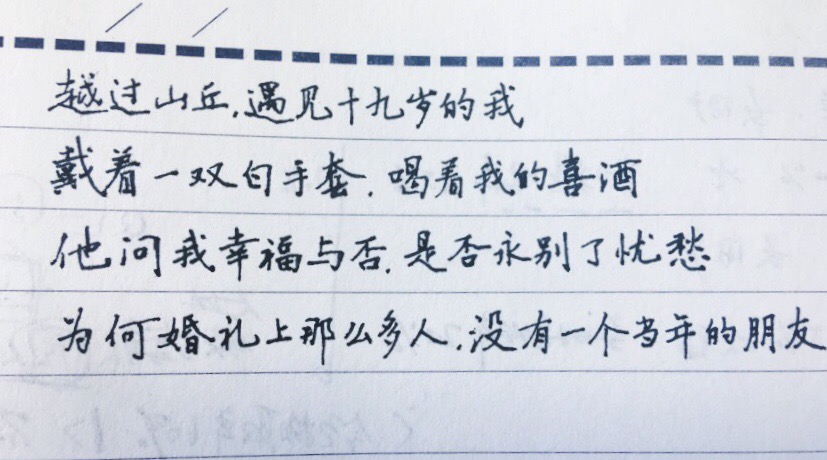 越过山丘,遇见十九岁的我
戴着一双白手套,喝着我的喜酒
他问我幸福与否,是否永别了忧愁
为何婚礼上那么多人,没有一个当年的朋友